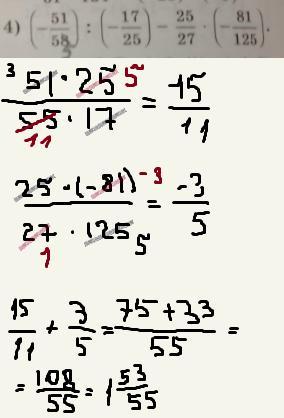 4) (-51/58) : (-17/25) - 25/27 · (-81/125).
3 51 · 25 5 / 55 · 17 11 = 15/11
25 · (-81) -3 / 27 · 125 1 5 = -3/5
15/11 + 3/5 = 75+33/55 =
= 108/55 = 1 53/55